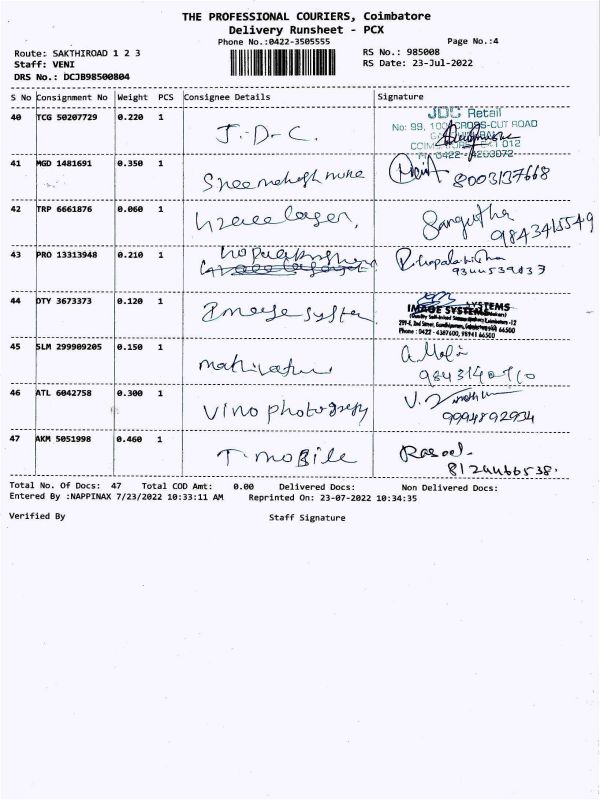 THE PROFESSIONAL COURIERS, Coimbatore
Delivery Runsheet - PCX
Phone No.:0422-3505555
Page No.:4
Route: SAKTHIROAD 1 2 3
RS No.: 985008
Staff: VENI
RS Date: 23-Jul-2022
DRS No.: DCJB98500804
S No Consignment No Weight PCS Consignee Details Signature
40 TCG 50207729 0.220 1 J.D.C. JDC Retail
No: 99, 100 CROSS-CUT ROAD
41 MGD 1481691 0.350 1 8003137668
42 TRP 6661876 0.060 1 Sangutha
9843415549
43 PRO 13313948 0.210 1
9344539437
44 DTY 3673373 0.120 1 Image System IMAGE SYSTEMS
Phone : 0422 - 4387600, 98941 66500
45 SLM 299909205 0.150 1
46 ATL 6042758 0.300 1 Vino photography V.
9994892934
47 AKM 5051998 0.460 1 T-moBile Rasool.
8124466538.
Total No. Of Docs: 47 Total COD Amt: 0.00 Delivered Docs: Non Delivered Docs:
Entered By :NAPPINAX 7/23/2022 10:33:11 AM Reprinted On: 23-07-2022 10:34:35
Verified By Staff Signature